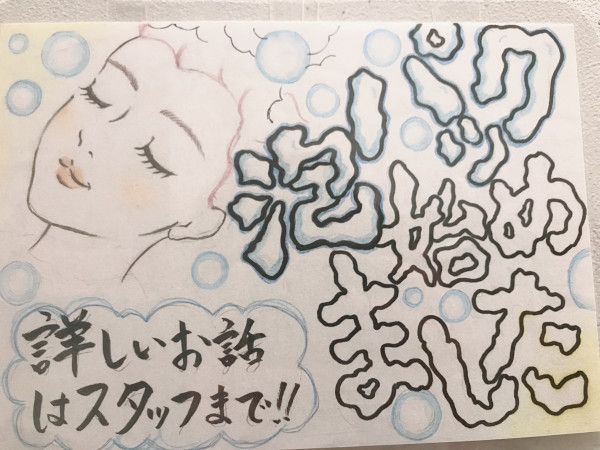 泡パック
始め
ました
詳しいお話
はスタッフまで!!